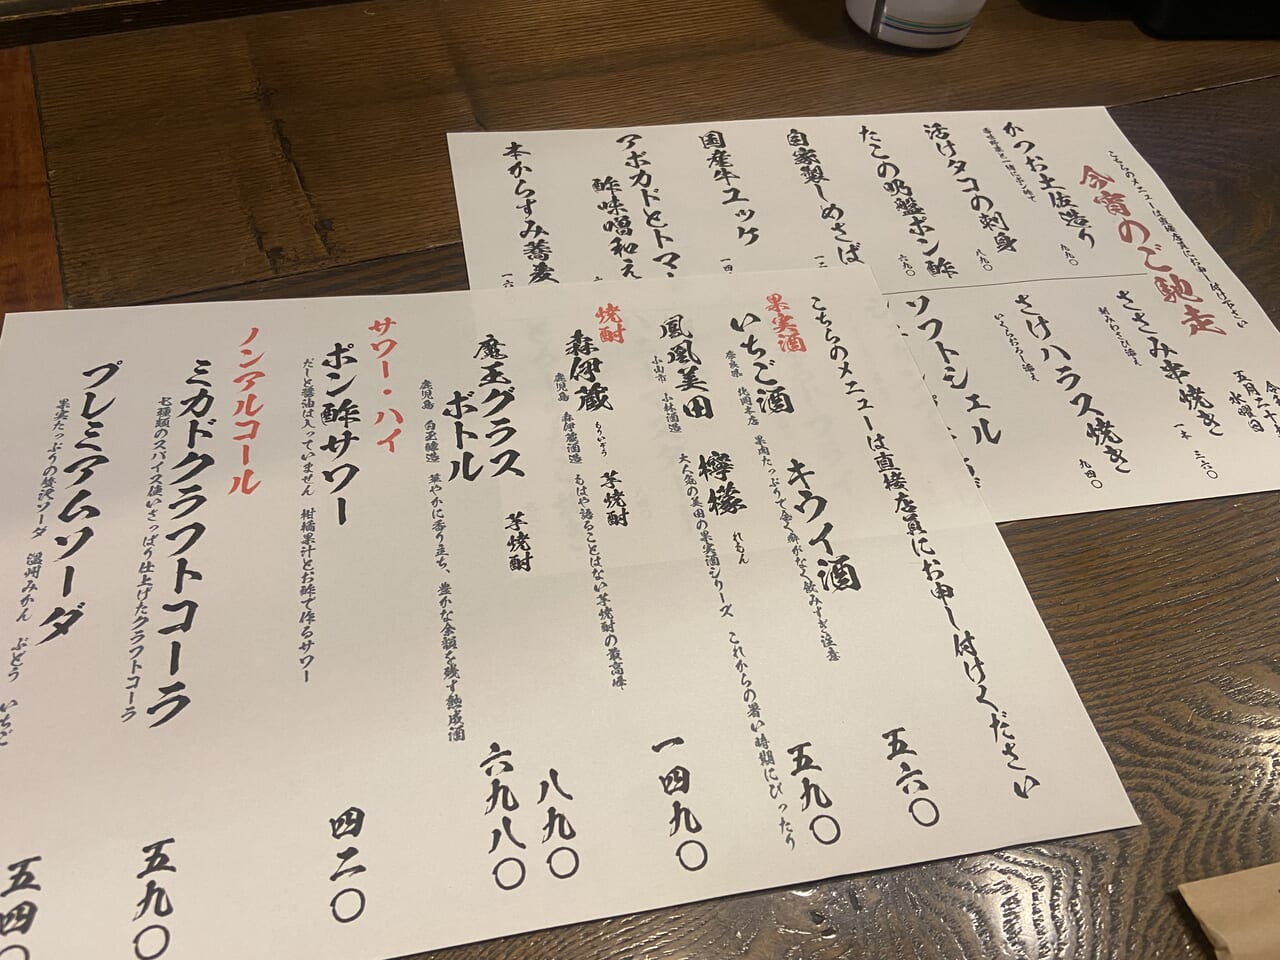 こちらのメニューは直接店員にお申し付けください
果実酒
いちご酒 キウイ酒 五六〇
奈良県 北岡本店 果肉たっぷりで全く癖がなく飲みすぎ注意
鳳凰美田 檸檬 れもん 五九〇
小山市 小林酒造 大人気の美田の果実酒シリーズ これからの暑い時期にぴったり
焼酎
森伊蔵 もりいぞう 芋焼酎 一四九〇
鹿児島 森伊蔵酒造 もはや語ることはない芋焼酎の最高峰
魔王グラス 芋焼酎 八九〇
ボトル 六九八〇
鹿児島 白玉醸造 華やかに香り立ち、豊かな余韻を残す熟成酒
サワー・ハイ
ポン酢サワー 四二〇
だしと醤油は入っていません 柑橘果汁とお酢で作るサワー
ノンアルコール
ミカドクラフトコーラ 五九〇
七種類のスパイス使いさっぱり仕上げたクラフトコーラ
プレミアムソーダ 五四〇
果実たっぷりの贅沢ソーダ 温州みかん ぶどう いちご
五月二十
水曜日
こちらのメニューは直接店員にお申し付け下さい
今宵のご馳走
かつお土佐造り 九九〇
活けタコの刺身 八九〇
たこの吸盤ポン酢 六九〇
自家製しめさば
国産牛ユッケ
アボカドとトマ
酢味噌和え
本からすみ蕎麦
ささみ串焼き 一本 三六〇
刻みわさび添え
さけハラス焼き 九四〇
いくらおろし添え
ソフトシェル